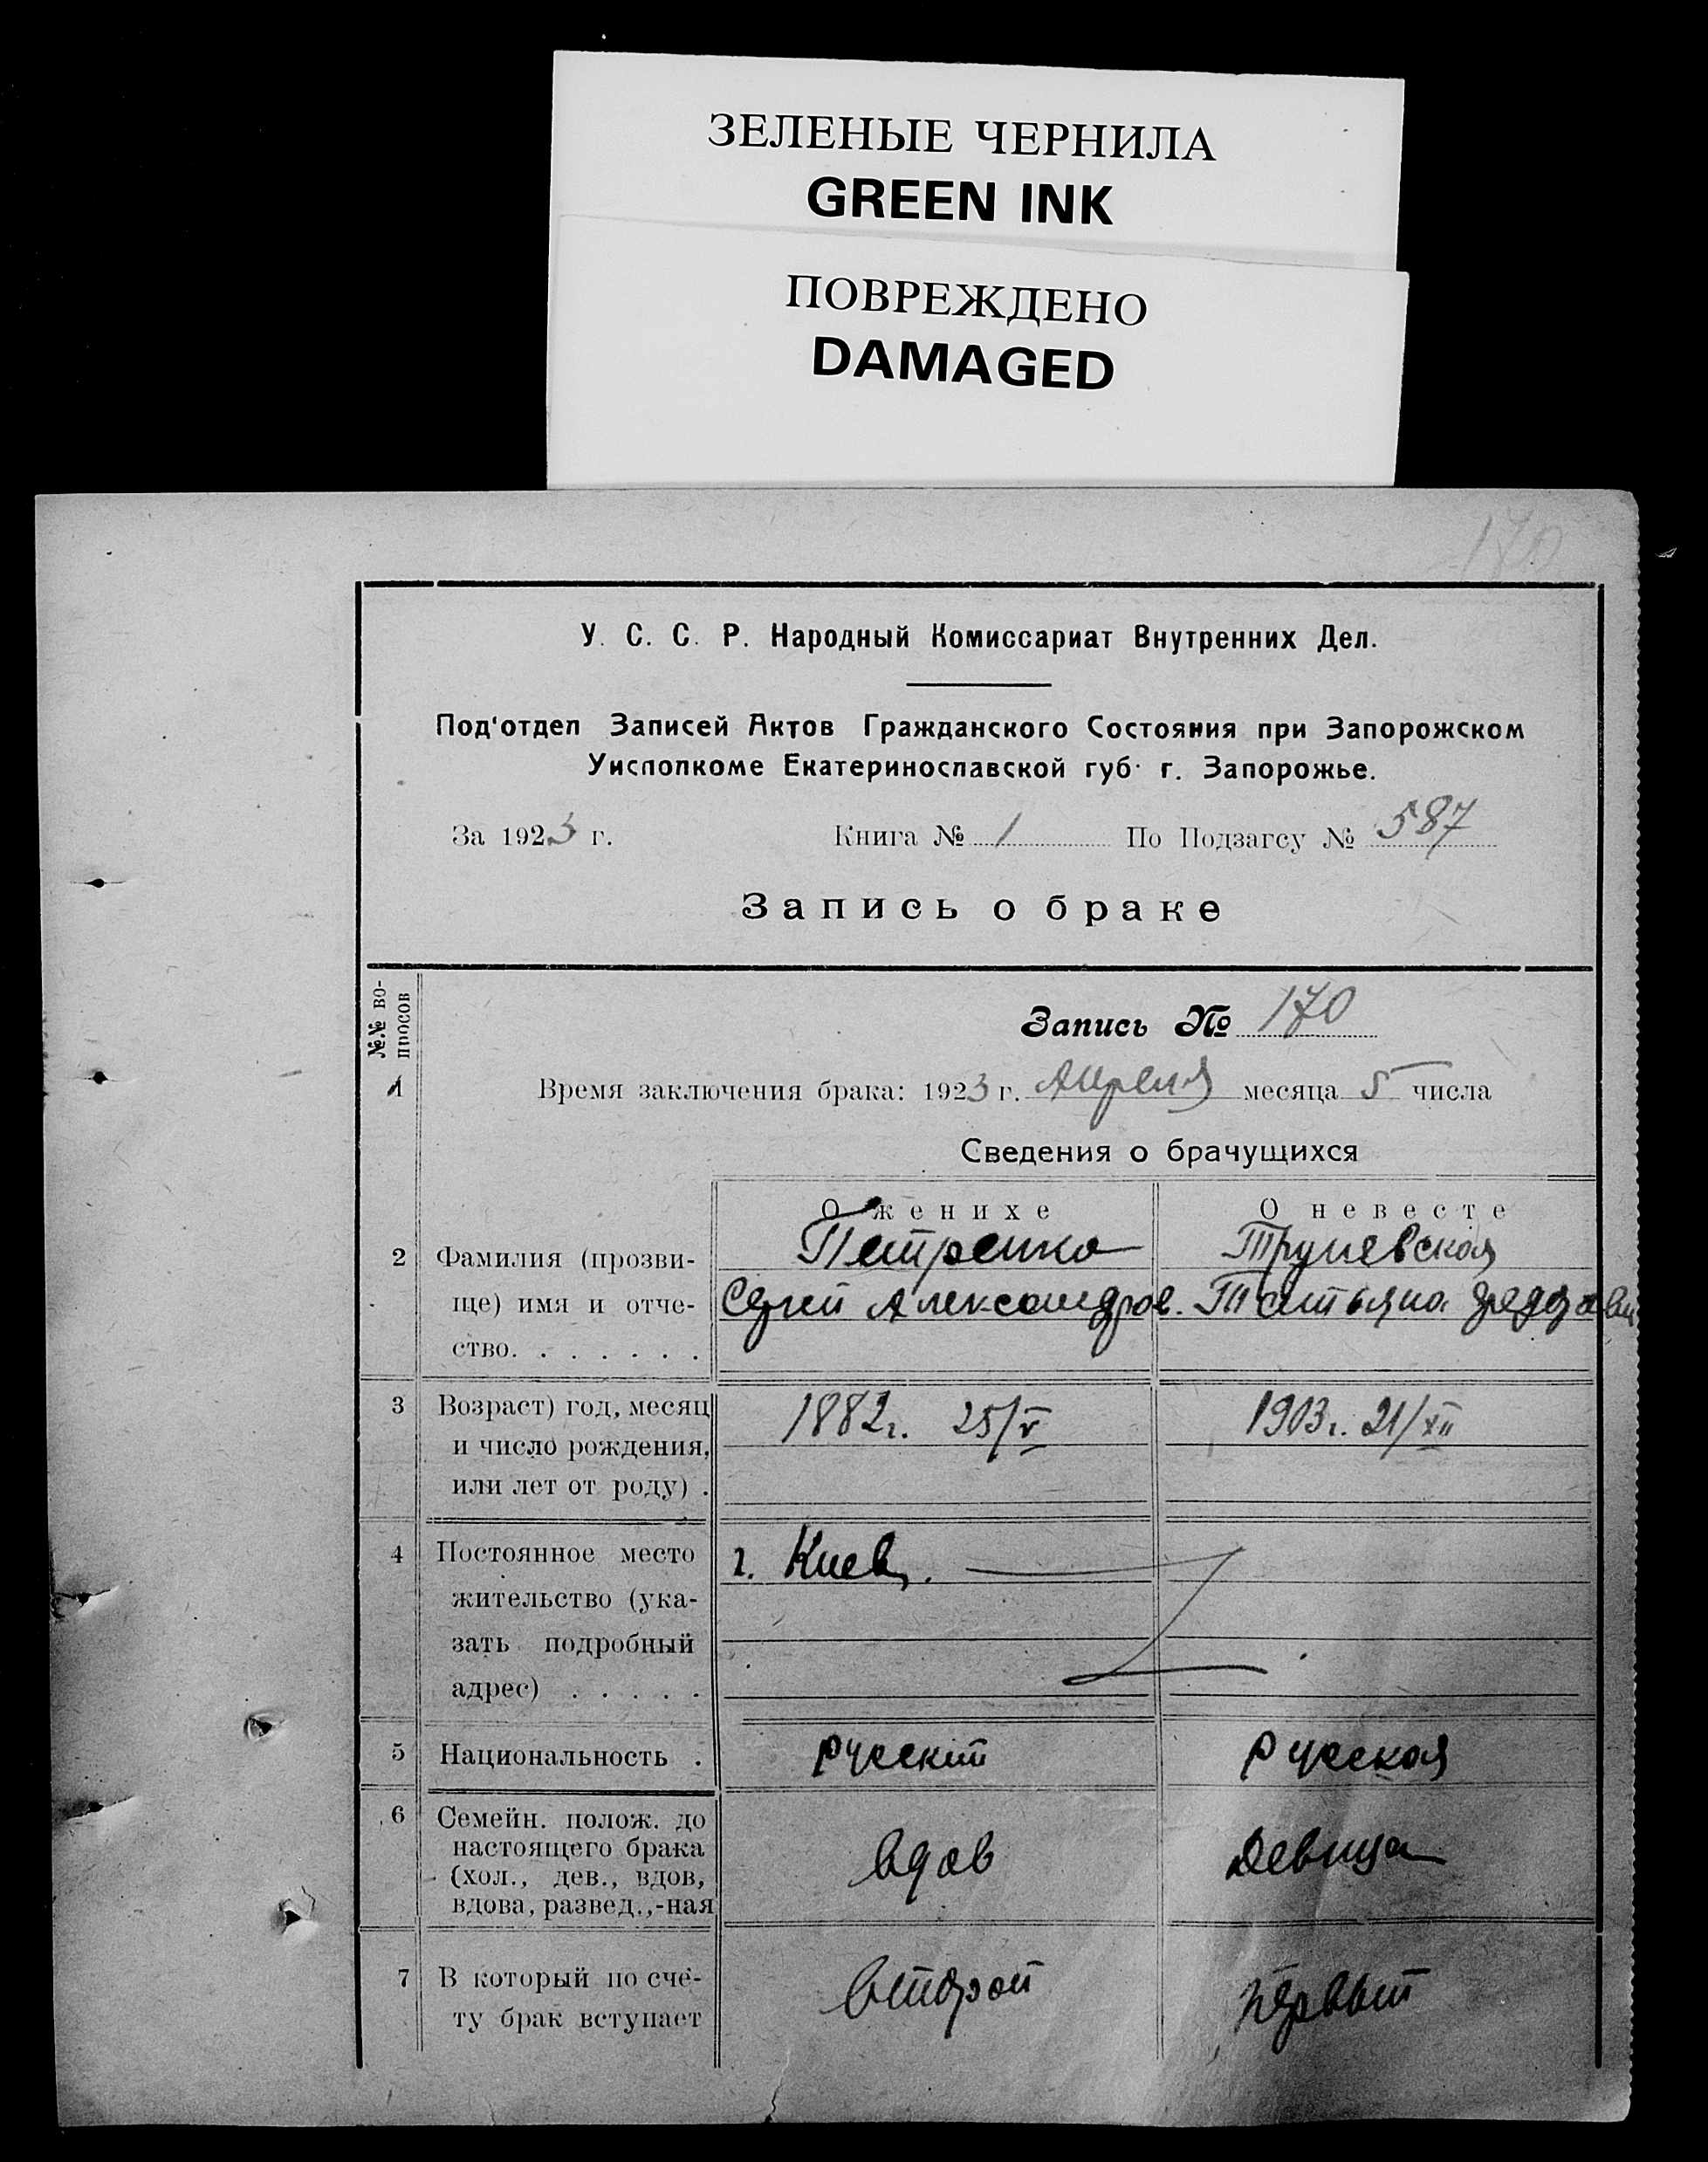 ЗЕЛЕНЫЕ ЧЕРНИЛА
GREEN INK
ПОВРЕЖДЕНО
DAMAGED
170
У. С. С. Р. Народный Комиссариат Внутренних Дел.
Под'отдел Записей Актов Гражданского Состояния при Запорожском
Уисполкоме Екатеринославской губ. г. Запорожье.
За 1923 г. Книга № 1 По Подзагсу № 587
Запись о браке
№.№ во-
просов
Запись № 170
1 Время заключения брака: 1923 г. Апреля месяца 5 числа
Сведения о брачущихся
О женихе О невесте
2 Фамилия (прозви- Петренко
ще) имя и отче- Сергей Александров. Татьяна
ство. . . . . . .
3 Возраст) год, месяц 1882г. 25/V 1903г. 21/XII
и число рождения,
или лет от роду) .
4 Постоянное место г. Киев.
жительство (ука-
зать подробный
адрес) . . . . .
5 Национальность . русский русская
6 Семейн. полож. до
настоящего брака вдов девица
(хол., дев., вдов,
вдова, развед.,-ная
7 В который по сче- второй первый
ту брак вступает